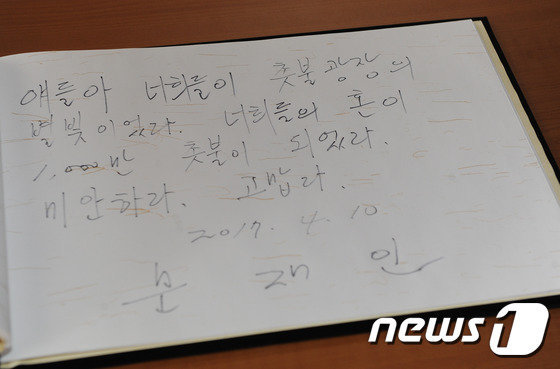 얘들아 너희들이 촛불광장의
별빛이었다. 너희들의 혼이
1,000만 촛불이 되었다.
미안하다. 고맙다.
2017. 4. 10
문 재 인
news1